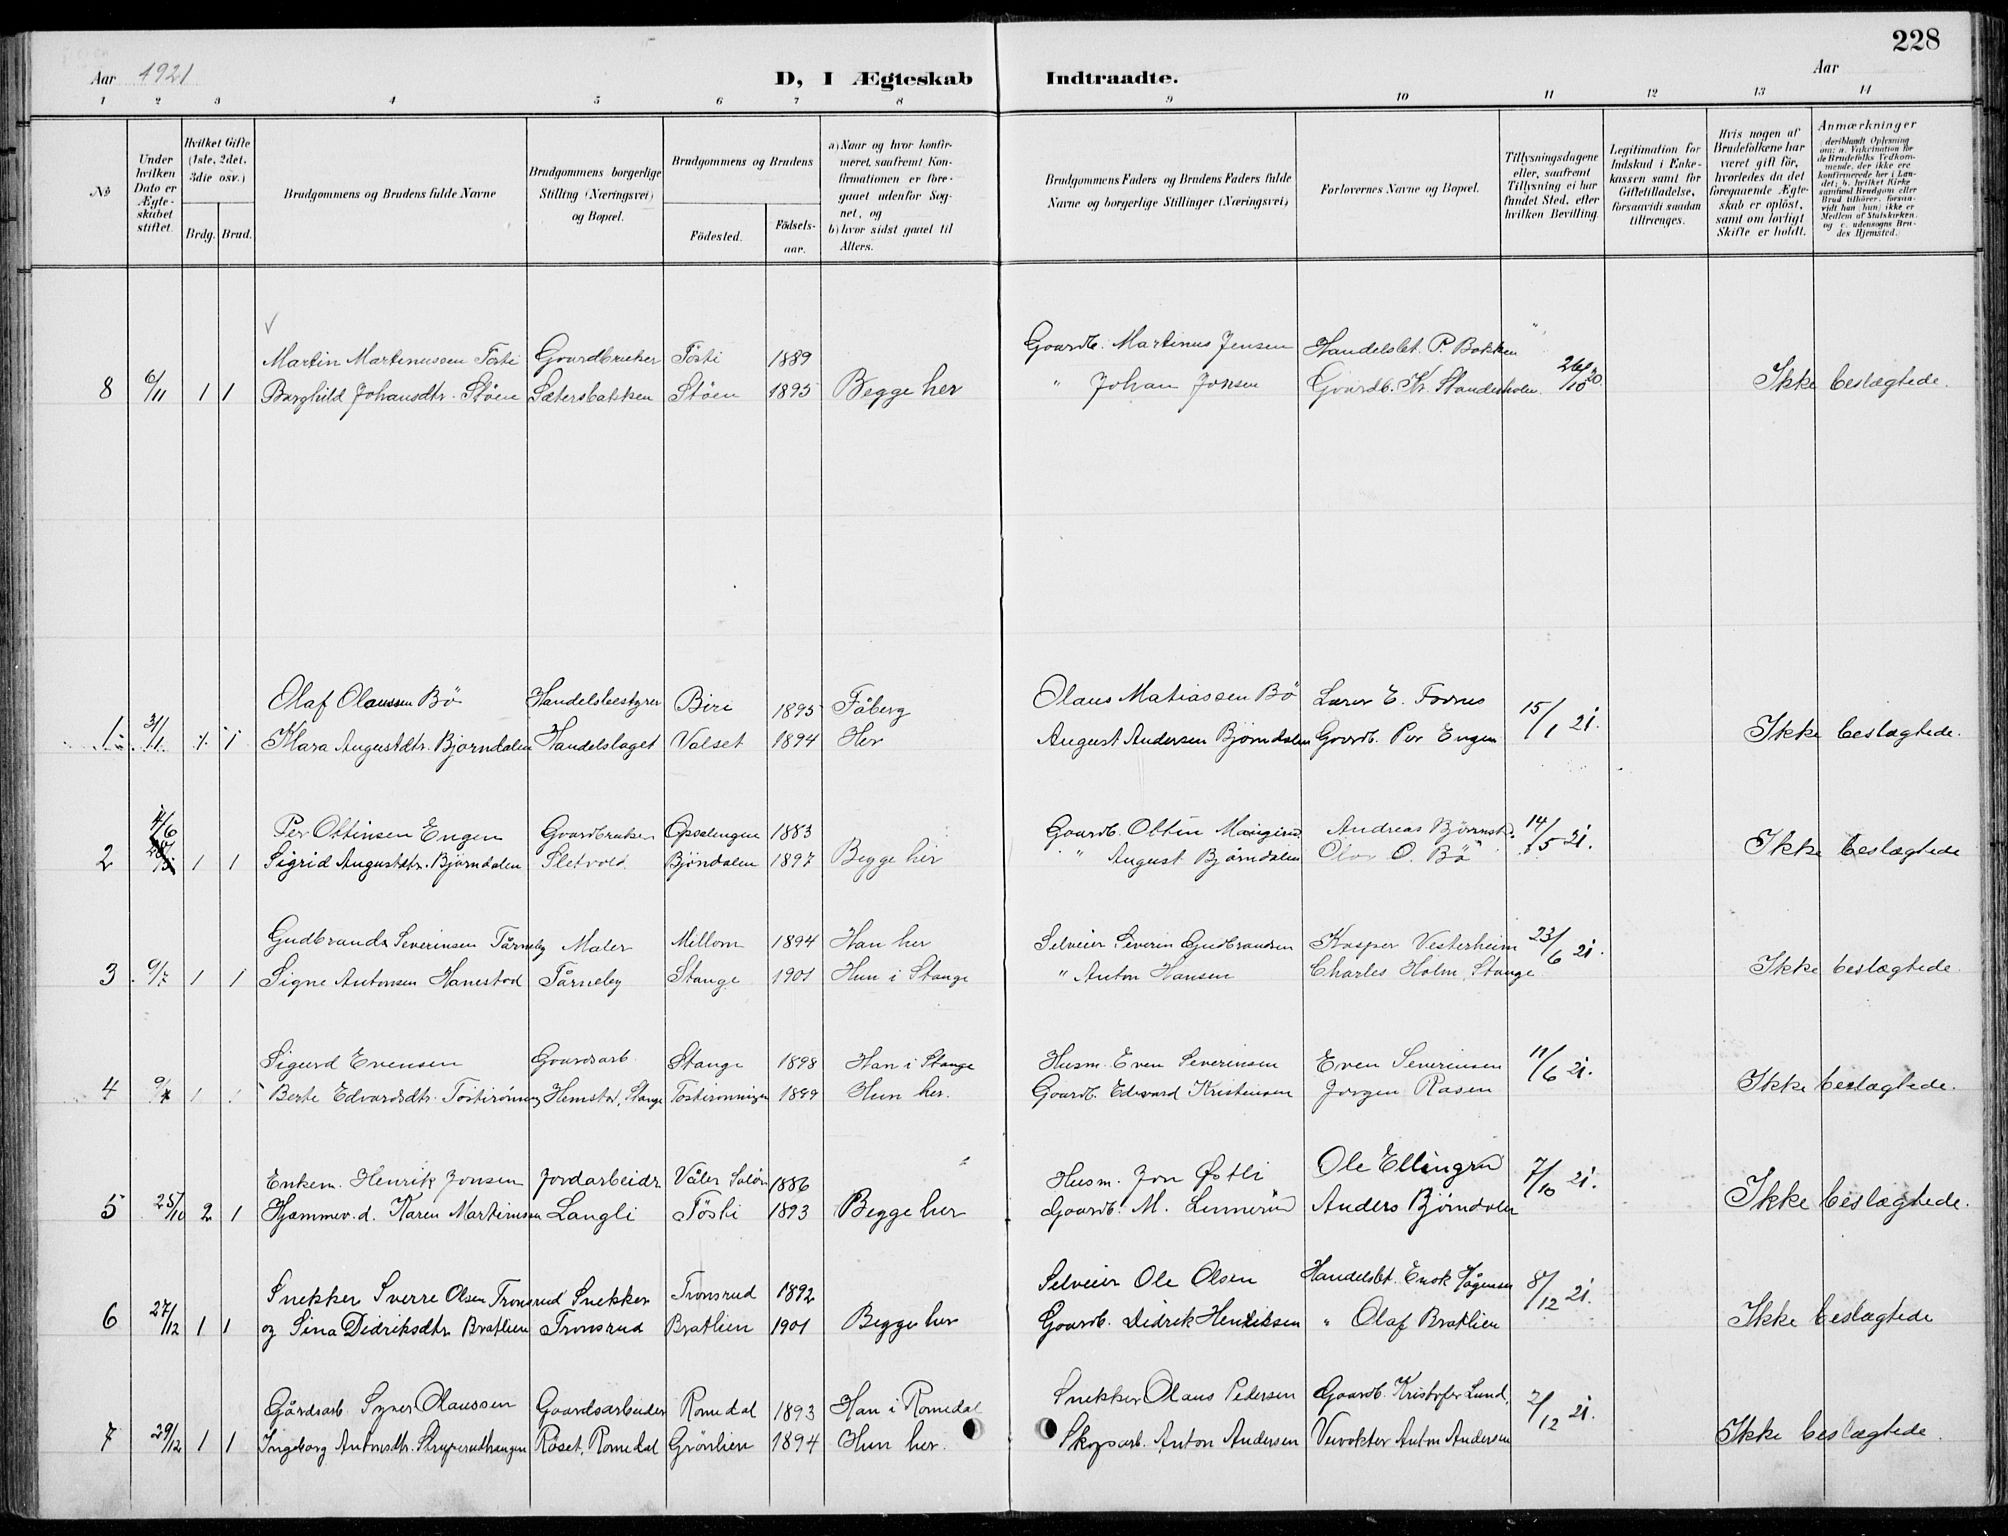 228
Aar 1921
D, I Ægteskab Indtraadte.
Aar
1 2 3 4 5 6 7 8 9 10 11 12 13 14
No
Under hvilken Dato er Ægteskabet stiftet.
Hvilket Gifte (1ste, 2det, 3die osv.)
Brdg. Brud.
Brudgommens og Brudens fulde Navne
Brudgommens borgerlige Stilling (Næringsvei) og Bopæl.
Brudgommens og Brudens
Fødested.
Fødselsaar.
a) Naar og hvor konfirmeret, saafremt Konfirmationen er foregaaet udenfor Sognet, og
b) hvor sidst gaaet til Alters.
Brudgommens Faders og Brudens Faders fulde Navne og borgerlige Stillinger (Næringsvei)
Forlovernes Navne og Bopæl.
Tillysningsdagene eller, saafremt Tillysning ei har fundet Sted, efter hvilken Bevilling.
Legitimation for Indskud i Enkekassen samt for Giftetilladelse, forsaavidt saadan tiltrænges.
Hvis nogen af Brudefolkene har været gift før, hvorledes da det foregaaende Ægteskab er opløst, samt om lovligt Skifte er holdt.
Anmærkninger (deriblandt Oplysning om: a. Vakcination for de Brudefolks Vedkommende, der ikke ere konfirmerede her i Landet; b. hvilket Kirkesamfund Brudgom eller Brud tilhører, forsaavidt han (hun) ikke er Medlem af Statskirken, og c. udensogns Brudes Hjemsted.
Martin Martinussen Tosti Gaardbruker Tosti 1889 Gaardb. Martinus Jensen Handelsbt. P. Bakken
8 6/11 1 1 Borghild Johansdtr. Støen Sætersbakken Støen 1895 Begge her " Johan Jonsen Gaardb. Kr. 26/10 20. Ikke beslægtede.
Olaf Olaussen Bö Handelsbestyrer Biri 1895 Fåberg Olaus Matiassen Bö Lærer E.
1 31/1 1 1 Klara Augustdtr. Bjørndalen Handelslaget Valset 1894 Her August Andersen Bjørndalen Gaardb. Per Engen 15/1 21. Ikke beslægtede.
4/6 Per Ottinsen Engen Gaardbruker Opsalengen 1883 Gaardb. Ottin Andreas
2 1 1 Sigrid Augustdtr. Bjørndalen Sletvold Bjöndalen 1897 Begge her " August Bjørndalen Olav O. Bö 14/5 21. Ikke beslægtede
Gudbrand Severinsen Tårneby Maler Millom 1894 Han her Selveier Severin Gudbrandsen Kasper Vesterheim
3 9/7 1 1 Signe Antonsen Hanestad Tårneby Stange 1901 Hun i Stange " Anton Hansen Charles Holm, Stange 23/6 21. Ikke beslægtede
Sigurd Evensen Gaardsarb. Stange 1898 Han i Stange Husm. Even Severinsen Even Severinsen
4 9/7 1 1 Berte Edvardsdtr. Tostirønning Hemstad, Stange Tostirønningen 1899 Hun her. Gaardb. Edvard Kristiansen Jørgen Rasen 11/6 21. Ikke beslægtede.
Enkem. Henrik Jonsen Jordarbeidr Våler Solør 1886 Husm. Jon Østli Ole Ellingsrud
5 25/10 2 1 Hjemmev. d. Karen Martinsen Langli Tösti 1893 Begge her Gaardb. M. Linnerud Anders Bjørndalen 7/10 21. Ikke beslægtede.
Snekker Sverre Olsen Tronsrud Snekker Tronsrud 1892 Selveier Ole Olsen Handelsbt. Enok Hågensen
6 27/12 1 1 og Sina Didriksdtr Bratlien Tronsrud Bratlien 1901 Begge her Gaardb. Didrik Henriksen " Olaf Bratlien 8/12 21. Ikke beslægtede
Gårdsarb. Syver Olaussen Gaardsarbeider Romedal 1893 Han i Romedal Snekker Olaus Pedersen Gaardb. Kristofer Lund,
7 29/12 1 1 Ingeborg Antonsdtr. Røset, Romedal Grønlien 1894 Hun her. Skogsarb. Anton Andersen Veivokter Anton Andersen 2/12 21. Ikke beslægtede.